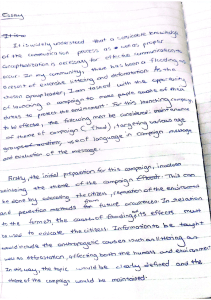 Essay
It is widely understood that a concrete knowledge
of the communication process as well as proper
comprehension is necessary for effective communication to
occur. In my community, there has been a flooding as
a result of excessive littering and deforestation. As the
chosen group leader, I am tasked with the
of launching a campaign to make people aware of their
duties to protect the environment. For this
to be effective, the following must be considered:
of theme of campaign (flood), targeting various age
groups use of language in campaign message
and evaluation of the message.
Firstly, the initial preparation for this campaign, involves
the theme of the campaign This can
be done by educating the citizen, of the environment
and prevention methods for future In relation
to the former, the causes of flooding, its effects must
be used to educate the citizen. Information to be taught
would include the anthropogenic causes such as littering
as deforestation, affecting both the humans and environment
In this way, the topic would be clearly defined and the
theme of the campaign would be maintained.